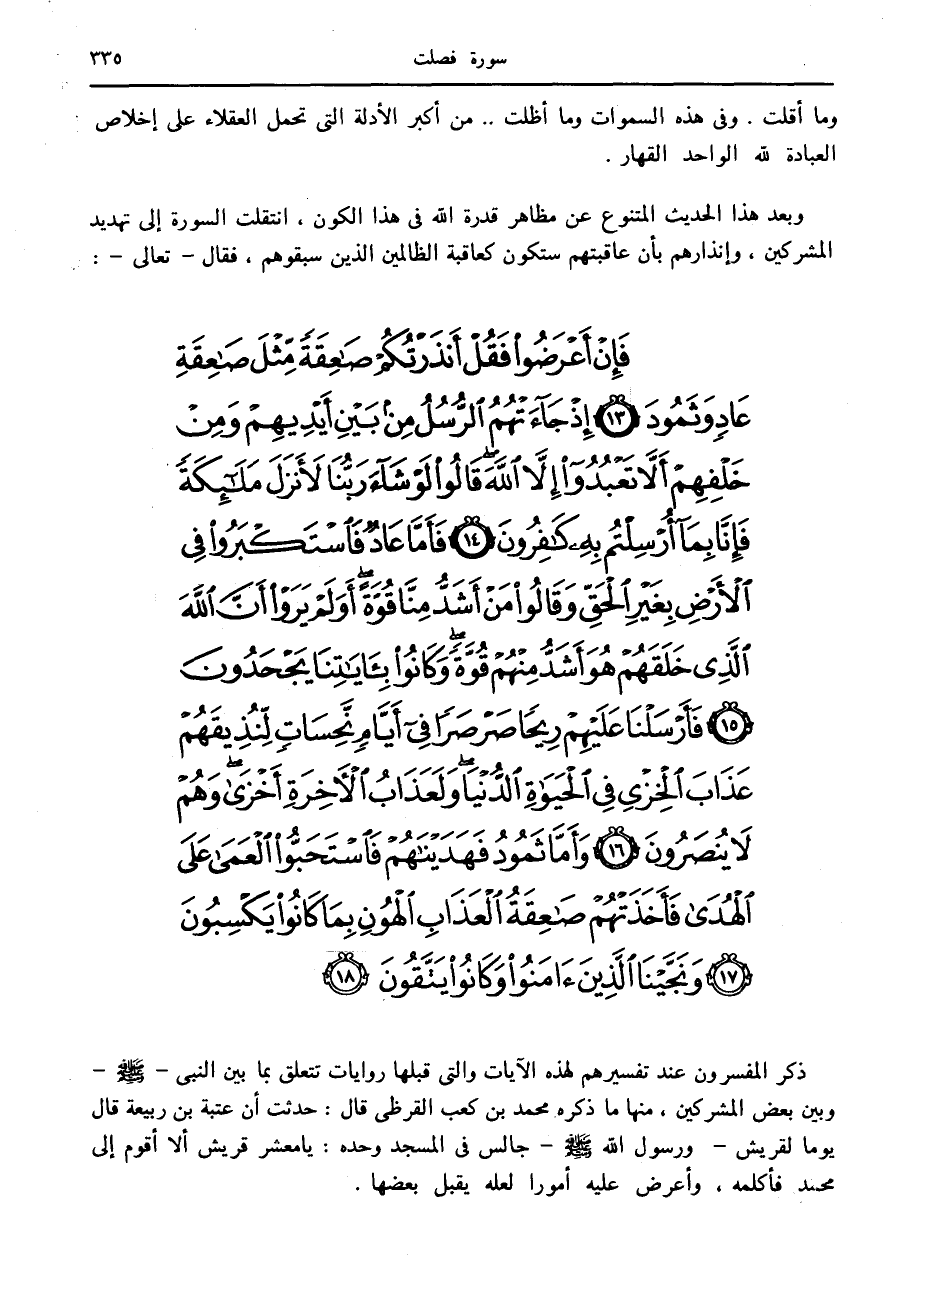 سورة فصلت ٣٣٥
وما أقلت . وفى هذه السموات وما أظلت .. من أكبر الأدلة التى تحمل العقلاء على إخلاص
العبادة لله الواحد القهار .
وبعد هذا الحديث المتنوع عن مظاهر قدرة الله فى هذا الكون ، انتقلت السورة إلى تهديد
المشركين ، وإنذارهم بأن عاقبتهم ستكون كعاقبة الظالمين الذين سبقوهم ، فقال – تعالى – :
فَإِنْ أَعْرَضُوا۟ فَقُلْ أَنذَرْتُكُمْ صَـٰعِقَةً مِّثْلَ صَـٰعِقَةِ
عَادٍ وَثَمُودَ ﴿١٣﴾ إِذْ جَآءَتْهُمُ ٱلرُّسُلُ مِنۢ بَيْنِ أَيْدِيهِمْ وَمِنْ
خَلْفِهِمْ أَلَّا تَعْبُدُوٓا۟ إِلَّا ٱللَّهَ ۖ قَالُوا۟ لَوْ شَآءَ رَبُّنَا لَأَنزَلَ مَلَـٰٓئِكَةً
فَإِنَّا بِمَآ أُرْسِلْتُم بِهِۦ كَـٰفِرُونَ ﴿١٤﴾ فَأَمَّا عَادٌ فَٱسْتَكْبَرُوا۟ فِى
ٱلْأَرْضِ بِغَيْرِ ٱلْحَقِّ وَقَالُوا۟ مَنْ أَشَدُّ مِنَّا قُوَّةً ۖ أَوَلَمْ يَرَوْا۟ أَنَّ ٱللَّهَ
ٱلَّذِى خَلَقَهُمْ هُوَ أَشَدُّ مِنْهُمْ قُوَّةً ۖ وَكَانُوا۟ بِـَٔايَـٰتِنَا يَجْحَدُونَ
﴿١٥﴾ فَأَرْسَلْنَا عَلَيْهِمْ رِيحًا صَرْصَرًا فِىٓ أَيَّامٍ نَّحِسَاتٍ لِّنُذِيقَهُمْ
عَذَابَ ٱلْخِزْىِ فِى ٱلْحَيَوٰةِ ٱلدُّنْيَا ۖ وَلَعَذَابُ ٱلْـَٔاخِرَةِ أَخْزَىٰ ۖ وَهُمْ
لَا يُنصَرُونَ ﴿١٦﴾ وَأَمَّا ثَمُودُ فَهَدَيْنَـٰهُمْ فَٱسْتَحَبُّوا۟ ٱلْعَمَىٰ عَلَى
ٱلْهُدَىٰ فَأَخَذَتْهُمْ صَـٰعِقَةُ ٱلْعَذَابِ ٱلْهُونِ بِمَا كَانُوا۟ يَكْسِبُونَ
﴿١٧﴾ وَنَجَّيْنَا ٱلَّذِينَ ءَامَنُوا۟ وَكَانُوا۟ يَتَّقُونَ ﴿١٨﴾
ذكر المفسرون عند تفسيرهم لهذه الآيات والتى قبلها روايات تتعلق بما بين النبى – ﷺ –
وبين بعض المشركين ، منها ما ذكره محمد بن كعب القرظى قال : حدثت أن عتبة بن ربيعة قال
يوما لقريش – ورسول الله ﷺ – جالس فى المسجد وحده : يامعشر قريش ألا أقوم إلى
محمد فأكلمه ، وأعرض عليه أمورا لعله يقبل بعضها .